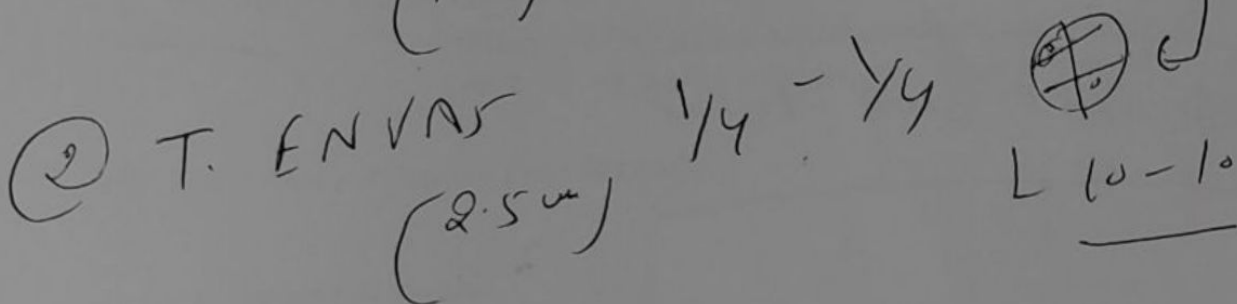 ② T. ENVAS 1/4 - 1/4
(2.5 m) L 10-10